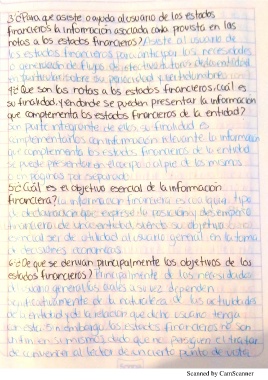 3¿Para que asiste o ayuda al usuario de los estados
financieros la información asociada como provista en las
notas a los estados financieros? Asiste al usuario de
los estados financieros para anticipar las necesidades
o anticipación de flujos de efectivo futuros de la entidad
en particular sobre su periodicidad y certidumbre
4¿Que son las notas a los estados financieros, cuál es
su finalidad, y en donde se pueden presentar la información
que complementa los estados financieros de la entidad?
Son parte integrante de ellos su finalidad es
complementarlos con información relevante la información
que complementa los estados financieros de la entidad
se puede presentar en el cuerpo o al pie de los mismos
o en paginas por separado
5¿Cuál es el objetivo esencial de la información
financiera? La información financiera es cualquier tipo
de declaración que exprese la posición y desempeño
financiero de una entidad, siendo su objetivo
esencial ser de utilidad al usuario general en la toma
de decisiones economicas
6¿De que se derivan principalmente los objetivos de los
estados financieros? Principalmente de las necesidades
del usuario general las cuales a su vez dependen
significativamente de la naturaleza de las actividades
de la entidad y de la relación que dicho usuario tenga
con esta. Sin embargo los estados financieros no son
un fin en si mismos dado que no persiguen el tratar
de convencer al lector de un cierto punto de vista
Scanned by CamScanner